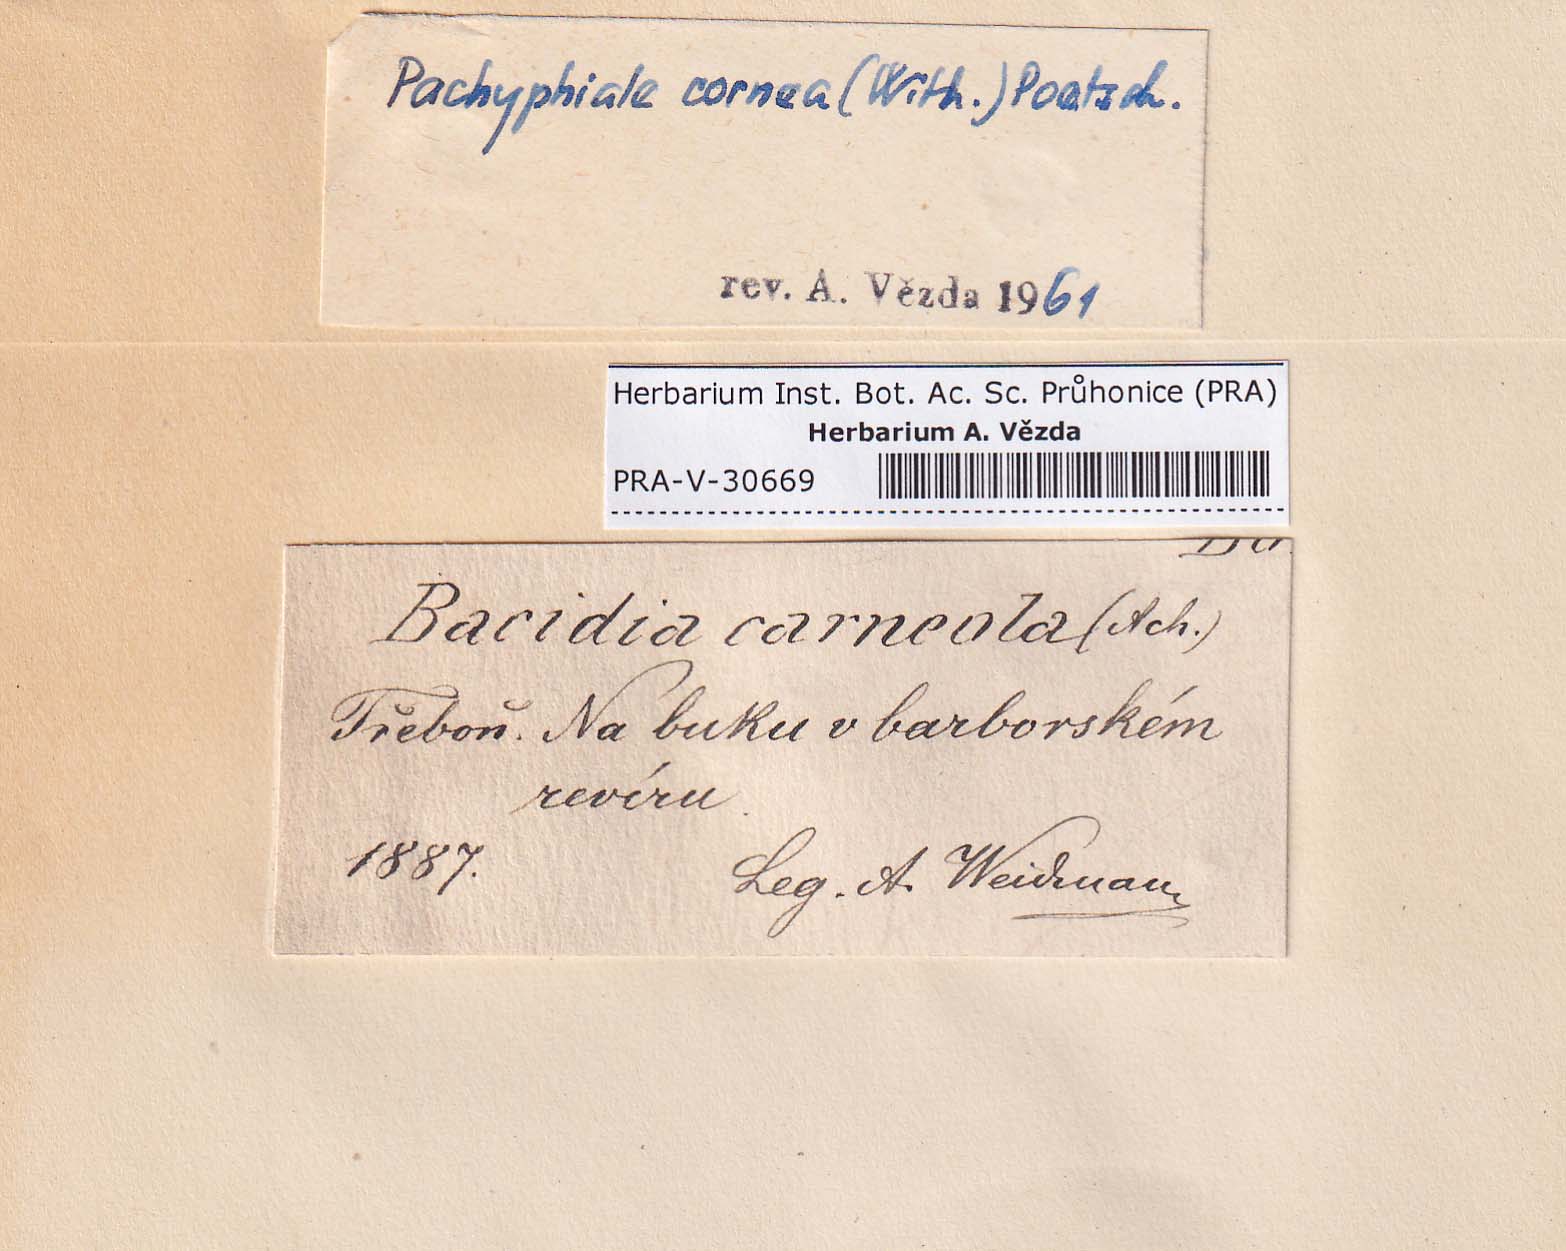 Pachyphiale cornea (With.) Poetsch.
rev. A. Vězda 1961
Herbarium Inst. Bot. Ac. Sc. Průhonice (PRA)
Herbarium A. Vězda
PRA-V-30669
Bacidia carneola (Ach.)
Třeboň. Na buku v barborském
revíru.
1887.
Leg. A. Weidmann